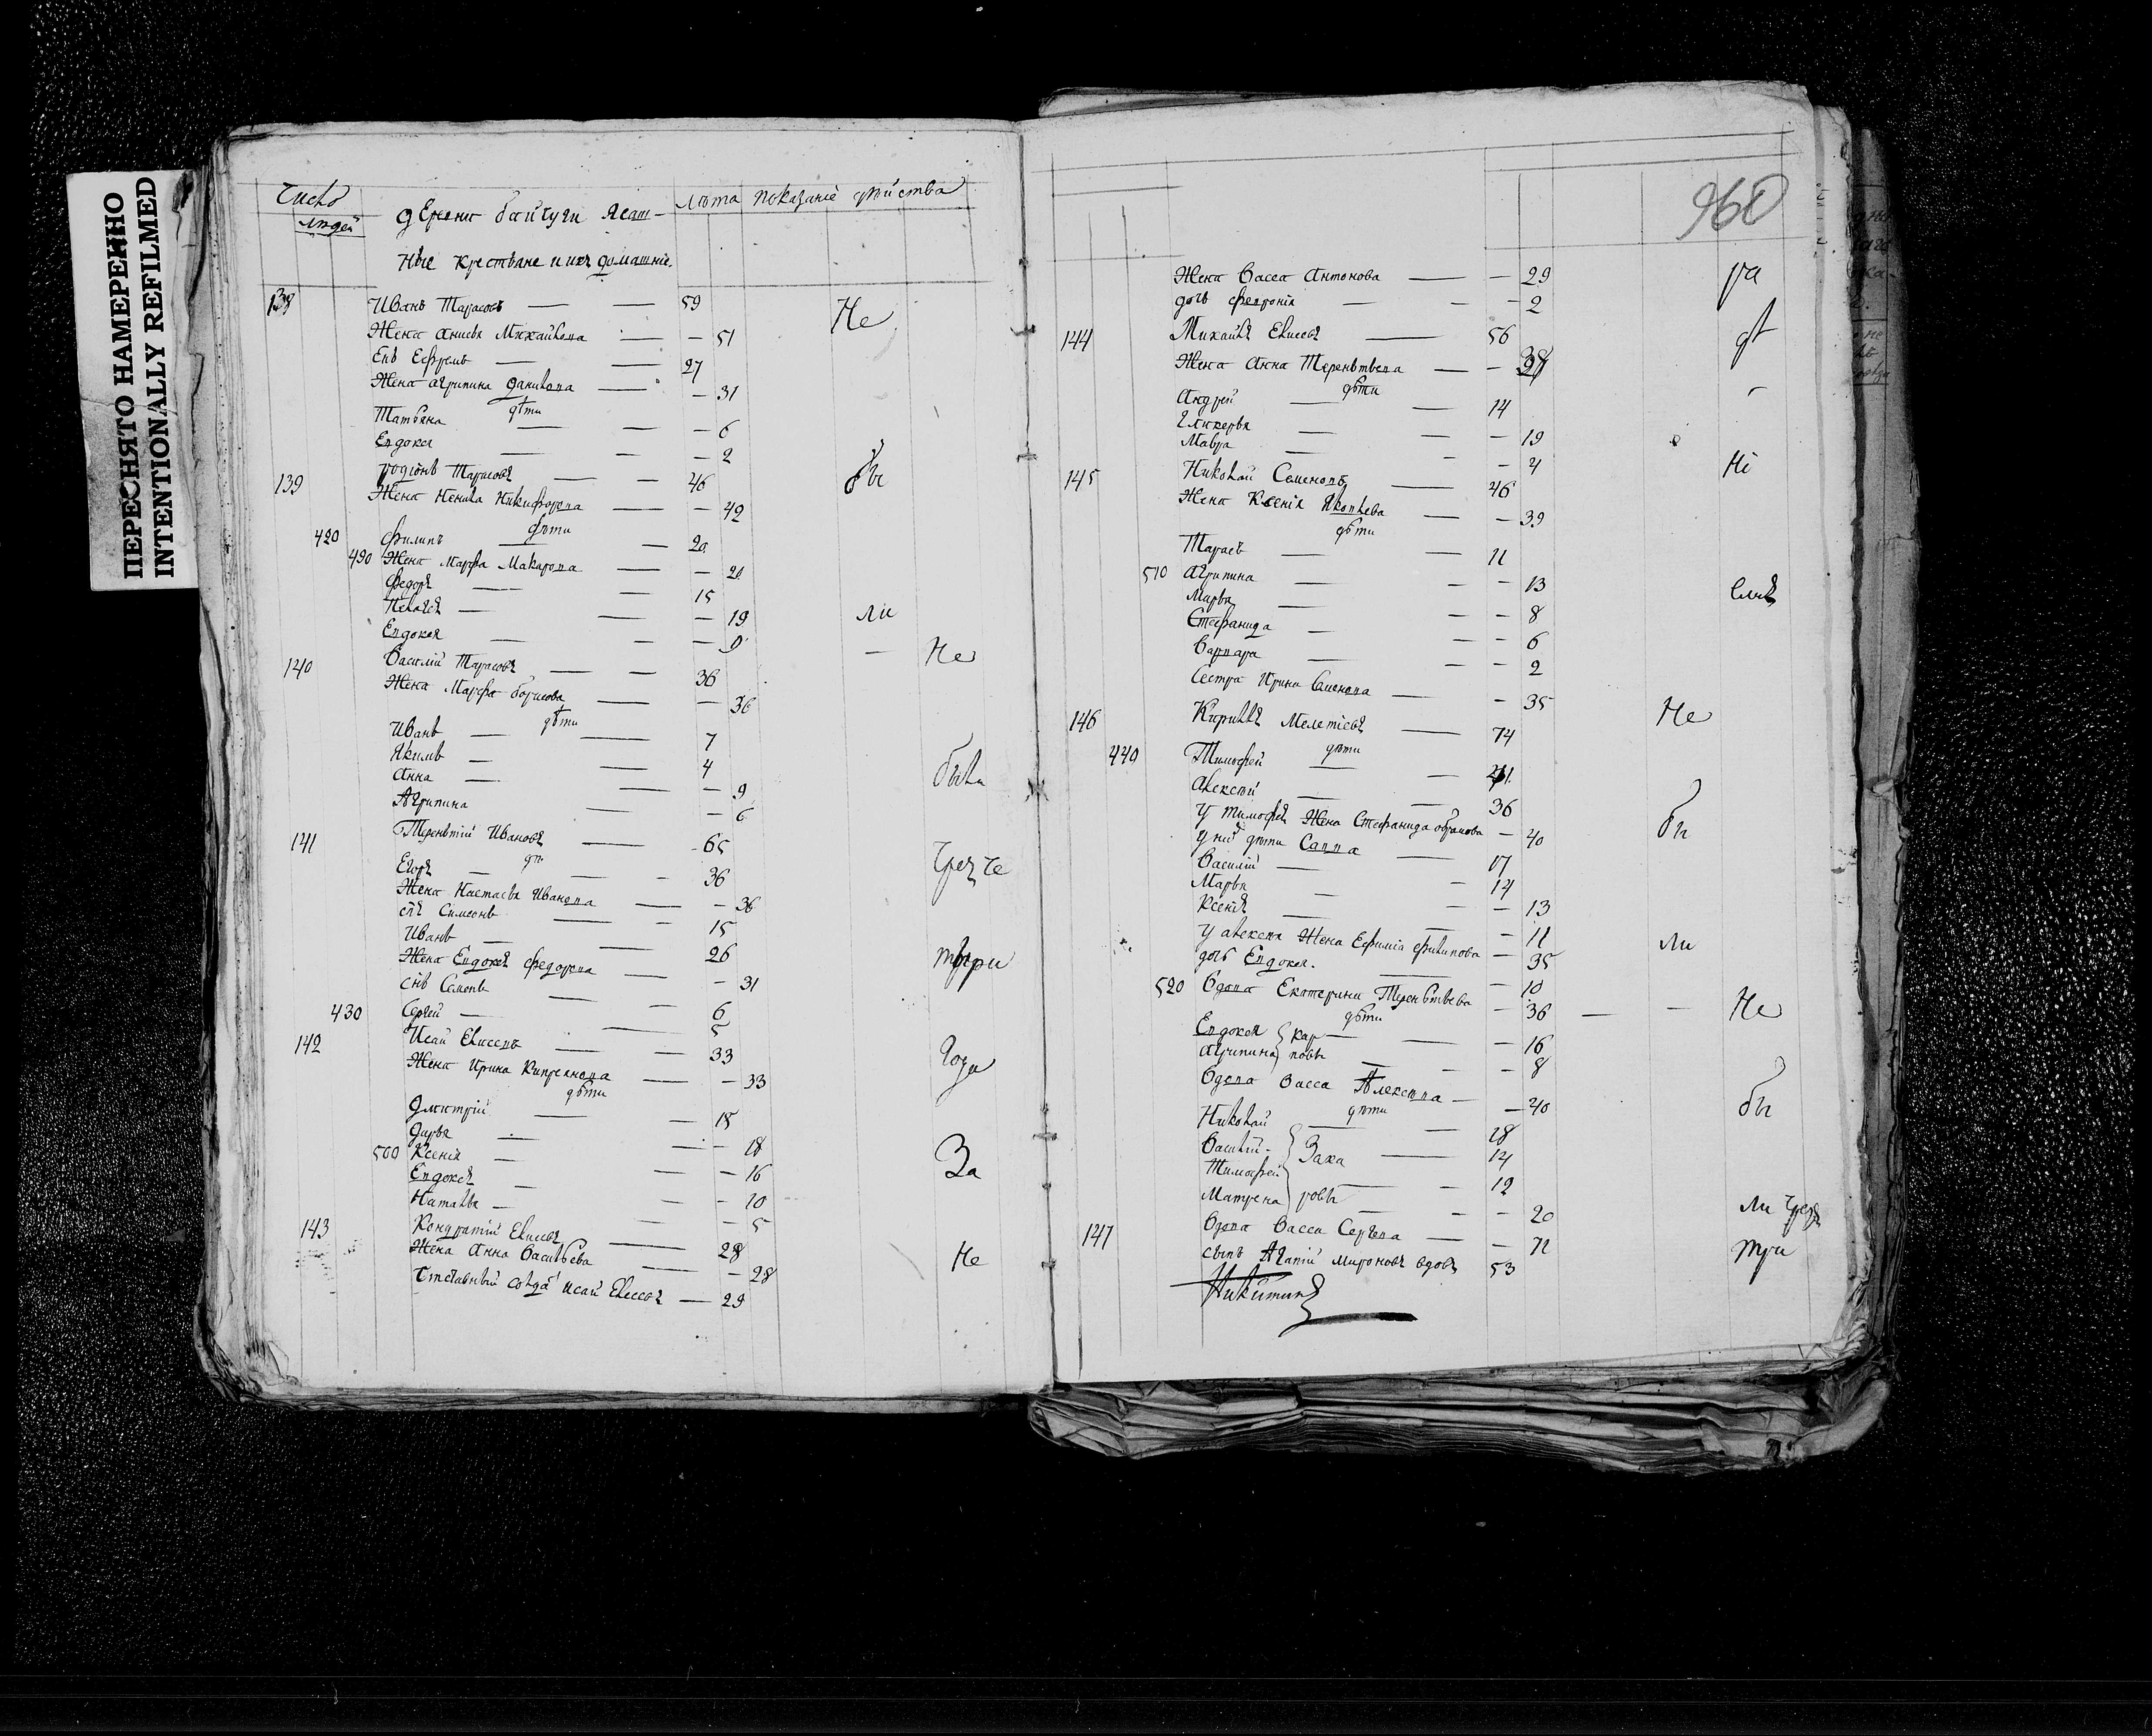 ПЕРЕСНЯТО НАМЕРЕННО
INTENTIONALLY REFILMED
Число людей
деревни байтуги Ясаш-
ные крестьяне и ихъ домашние.
Лѣта показаніе дѣйства
138 Иванъ Тарасовъ — — 59 Не
Жена Анисья Михайлова — — 51
Снъ Ефремъ — — 27
Жена Агрипина Данилова — — 31
дѣти
Татьяна — — — 6
Евдокея — — — 2
139 Родіонъ Тарасовъ — — 46 бы
Жена Ненила Никифорова — — 42
дѣти
420 Филипъ — — 20
490 Жена Марфа Макарова — — 20
Федоръ — — 15
Пелагея — — — 19 ли
Евдокея — — — 9
140 Василій Тарасовъ — — 36 Не
Жена Марфа борисова — — 36
дѣти
Иванъ — — 7
Якимъ — — 4 были
Анна — — — 9
Агрипина — — 6
141 Терентій Ивановъ — 65
дѣ
Егоръ — — — 36 чрез че
Жена Настасья Иванова — — 36
снъ Симеонъ — — 15
Иванъ — — 26
Жена Евдокея Федорова — — 31 тыри
снъ Семенъ — — 6
430 Сергей — — 5
142 Исай Елисеевъ — — 33 года
Жена Ирина Киприянова — — 33
дѣти
Дмитрій — 15
Дарья — — — 18
500 Ксенія — — — 16 За
Евдокея — — — 10
Наталья — — — 5
143 Кондратій Елисеевъ — 28
Жена Анна Васильева — — 28 Не
Отставный солдатъ Исай Елисеевъ — 29
960
Жена Васса Антонова — — 29 ра
дочь Феврония — — — 2
144 Михайлъ Елисеевъ — 56 дѣ
Жена Анна Терентьева — — 38
дѣти
Андрей — — 14
Гликерья — — 19
Мавра — — — 4
145 Николай Семеновъ — 46 Ні
Жена Ксенія Яковлева — — 39
дѣти
Тарасъ — — 11
510 Агрипина — — — 13
Марья — — — 8 емъ
Стефанида — — — 6
Варвара — — — 2
Сестра Ирина Семенова — — 35
146 Кирилла Мелетіевъ — 74 Не
дѣти
440 Тимофей — — 41
Алексей — — 36
У Тимофея Жена Стефанида — 40 бы
у них дѣти Савва — 17
Василій — — 14
Марья — — — 13
Ксенія — — — 11
У алексея Жена Ефимія Филипова — 35 ли
дочь Евдокея. — — 10
520 Вдова Екатерина Терентьева — 36 — — Не
дѣти
Евдокея } кар — — 16
Агрипина } повы — — — 8
Вдова Васса Алексеева — — 40 бы
дѣти
Николай — — 18
Василій } Заха — 14
Тимофей — — 12
Матрена } ровы — — — 20
147 Вдова Васса Сергеева — — 72 ли чрез
сынъ Агапій Мироновъ вдовъ 53 три
Никитинъ